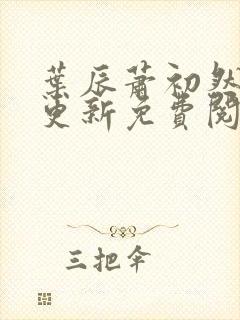 葉辰蕭初然
更新免費閱
三把伞